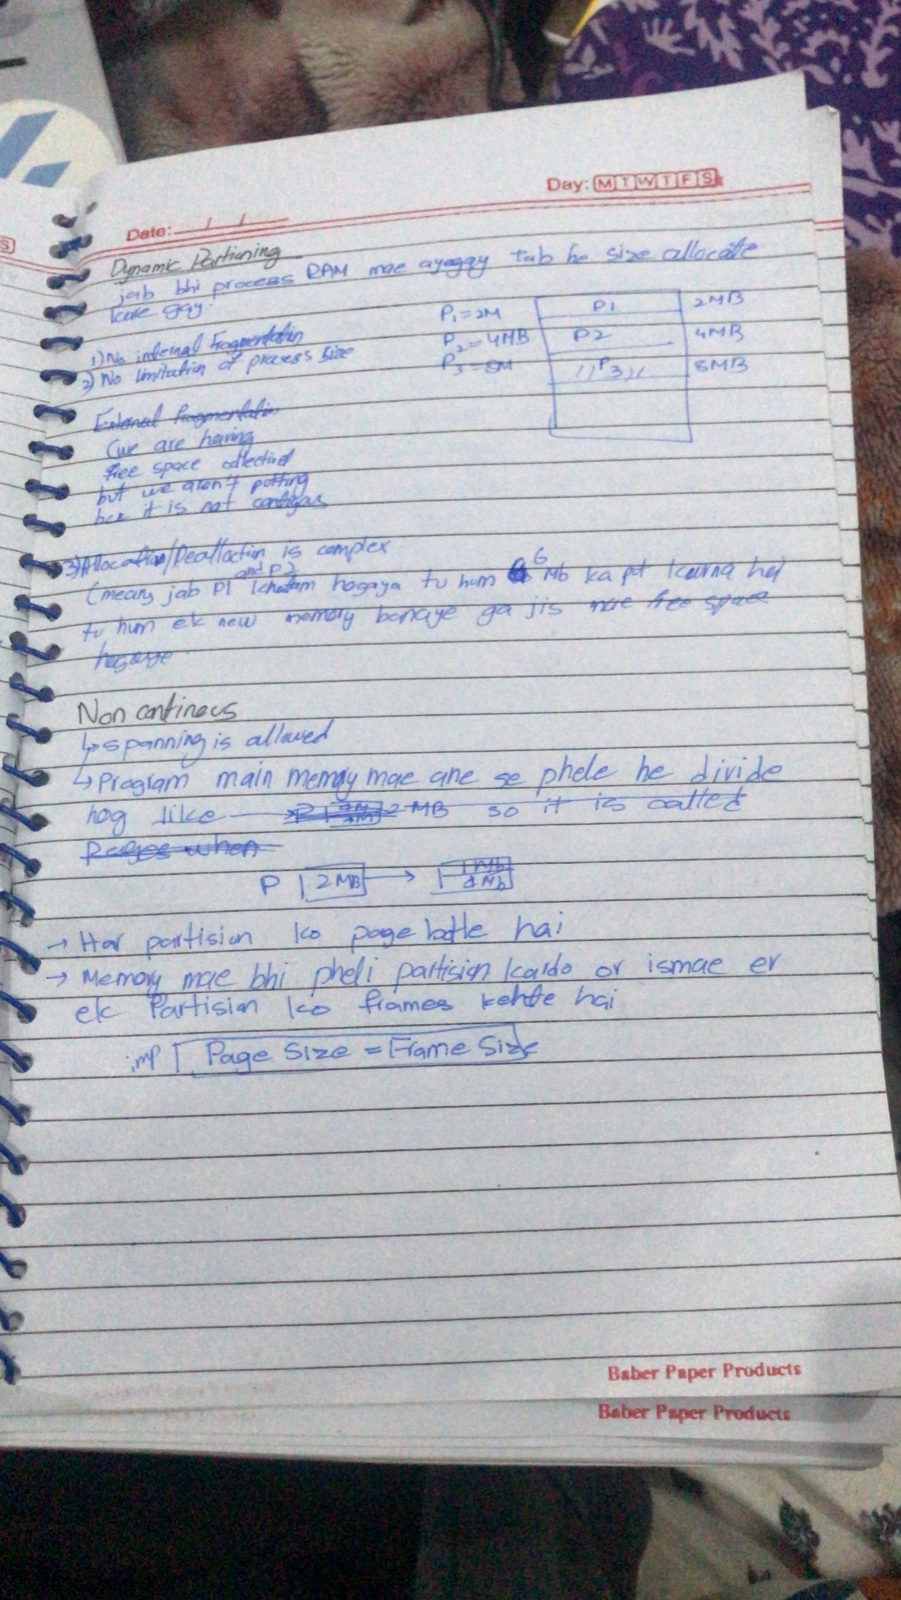 Day: M T W T F S
Date: / /
Dynamic Partioning
jab bhi process RAM mae ayegay tab he size allocate
kare gay.
P1=2M
P2=4MB
P3=8M
P1 2MB
P2 4MB
P3 8MB
1) No internal fragmentation
2) No limitation of process size
External fragmentation
(we are having
free space collectively
but we aren't putting
bcz it is not contigous
3) Allocation/Deallaction is complex
and P2
(means jab P1 khatam hogaya tu hum 6 Mb ka pt karna hai
tu hum ek new memory banaye ga jis mae free space
hogaye
Non continous
↳ spanning is allowed
↳ Program main memory mae ane se phele he divide
hog like P 2 MB so it is called
Pages when
P 2MB → 1Mb
1Mb
→ Har partision ko page bolte hai
→ Memory mae bhi pheli partision kardo or ismae er
ek Partision ko frames kehte hai
imp Page Size = Frame Size
Baber Paper Products
Baber Paper Products